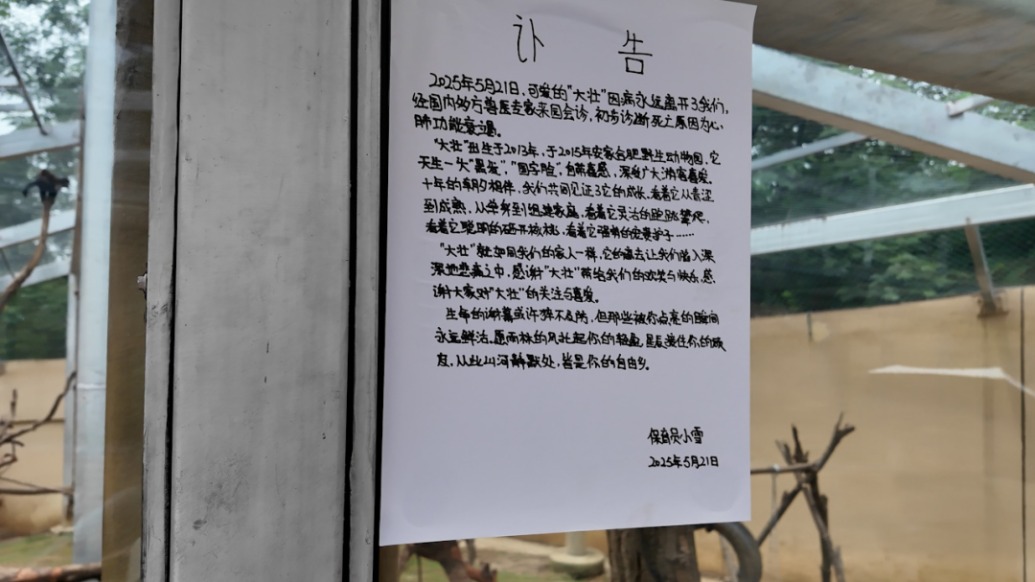 讣 告
2025年5月21日,可爱的"大壮"因病永远离开了我们,
经国内多方兽医专家来园会诊,初步诊断死亡原因为心
肺功能衰竭。
"大壮"出生于2013年,于2015年安家合肥野生动物园,它
天生一头"黑发","国字脸",自带喜感,深受广大游客喜爱。
十年的朝夕相伴,我们共同见证了它的成长,看着它从青涩
到成熟,从单身到组建家庭,看着它灵活的跑跳攀爬,
看着它聪明的砸开核桃,看着它强势的安妻护子……
"大壮"就如同我们的家人一样,它的离去让我们陷入深
深地悲痛之中,感谢"大壮"带给我们的欢笑与快乐,感
谢大家对"大壮"的关注与喜爱。
生年的谢幕或许猝不及防,但那些被你点亮的瞬间
永远鲜活,愿雨林的风托起你的轻盈,星辰接住你的顽
皮,从此山河静默处,皆是你的自由乡。
保育员小雪
2025年5月21日